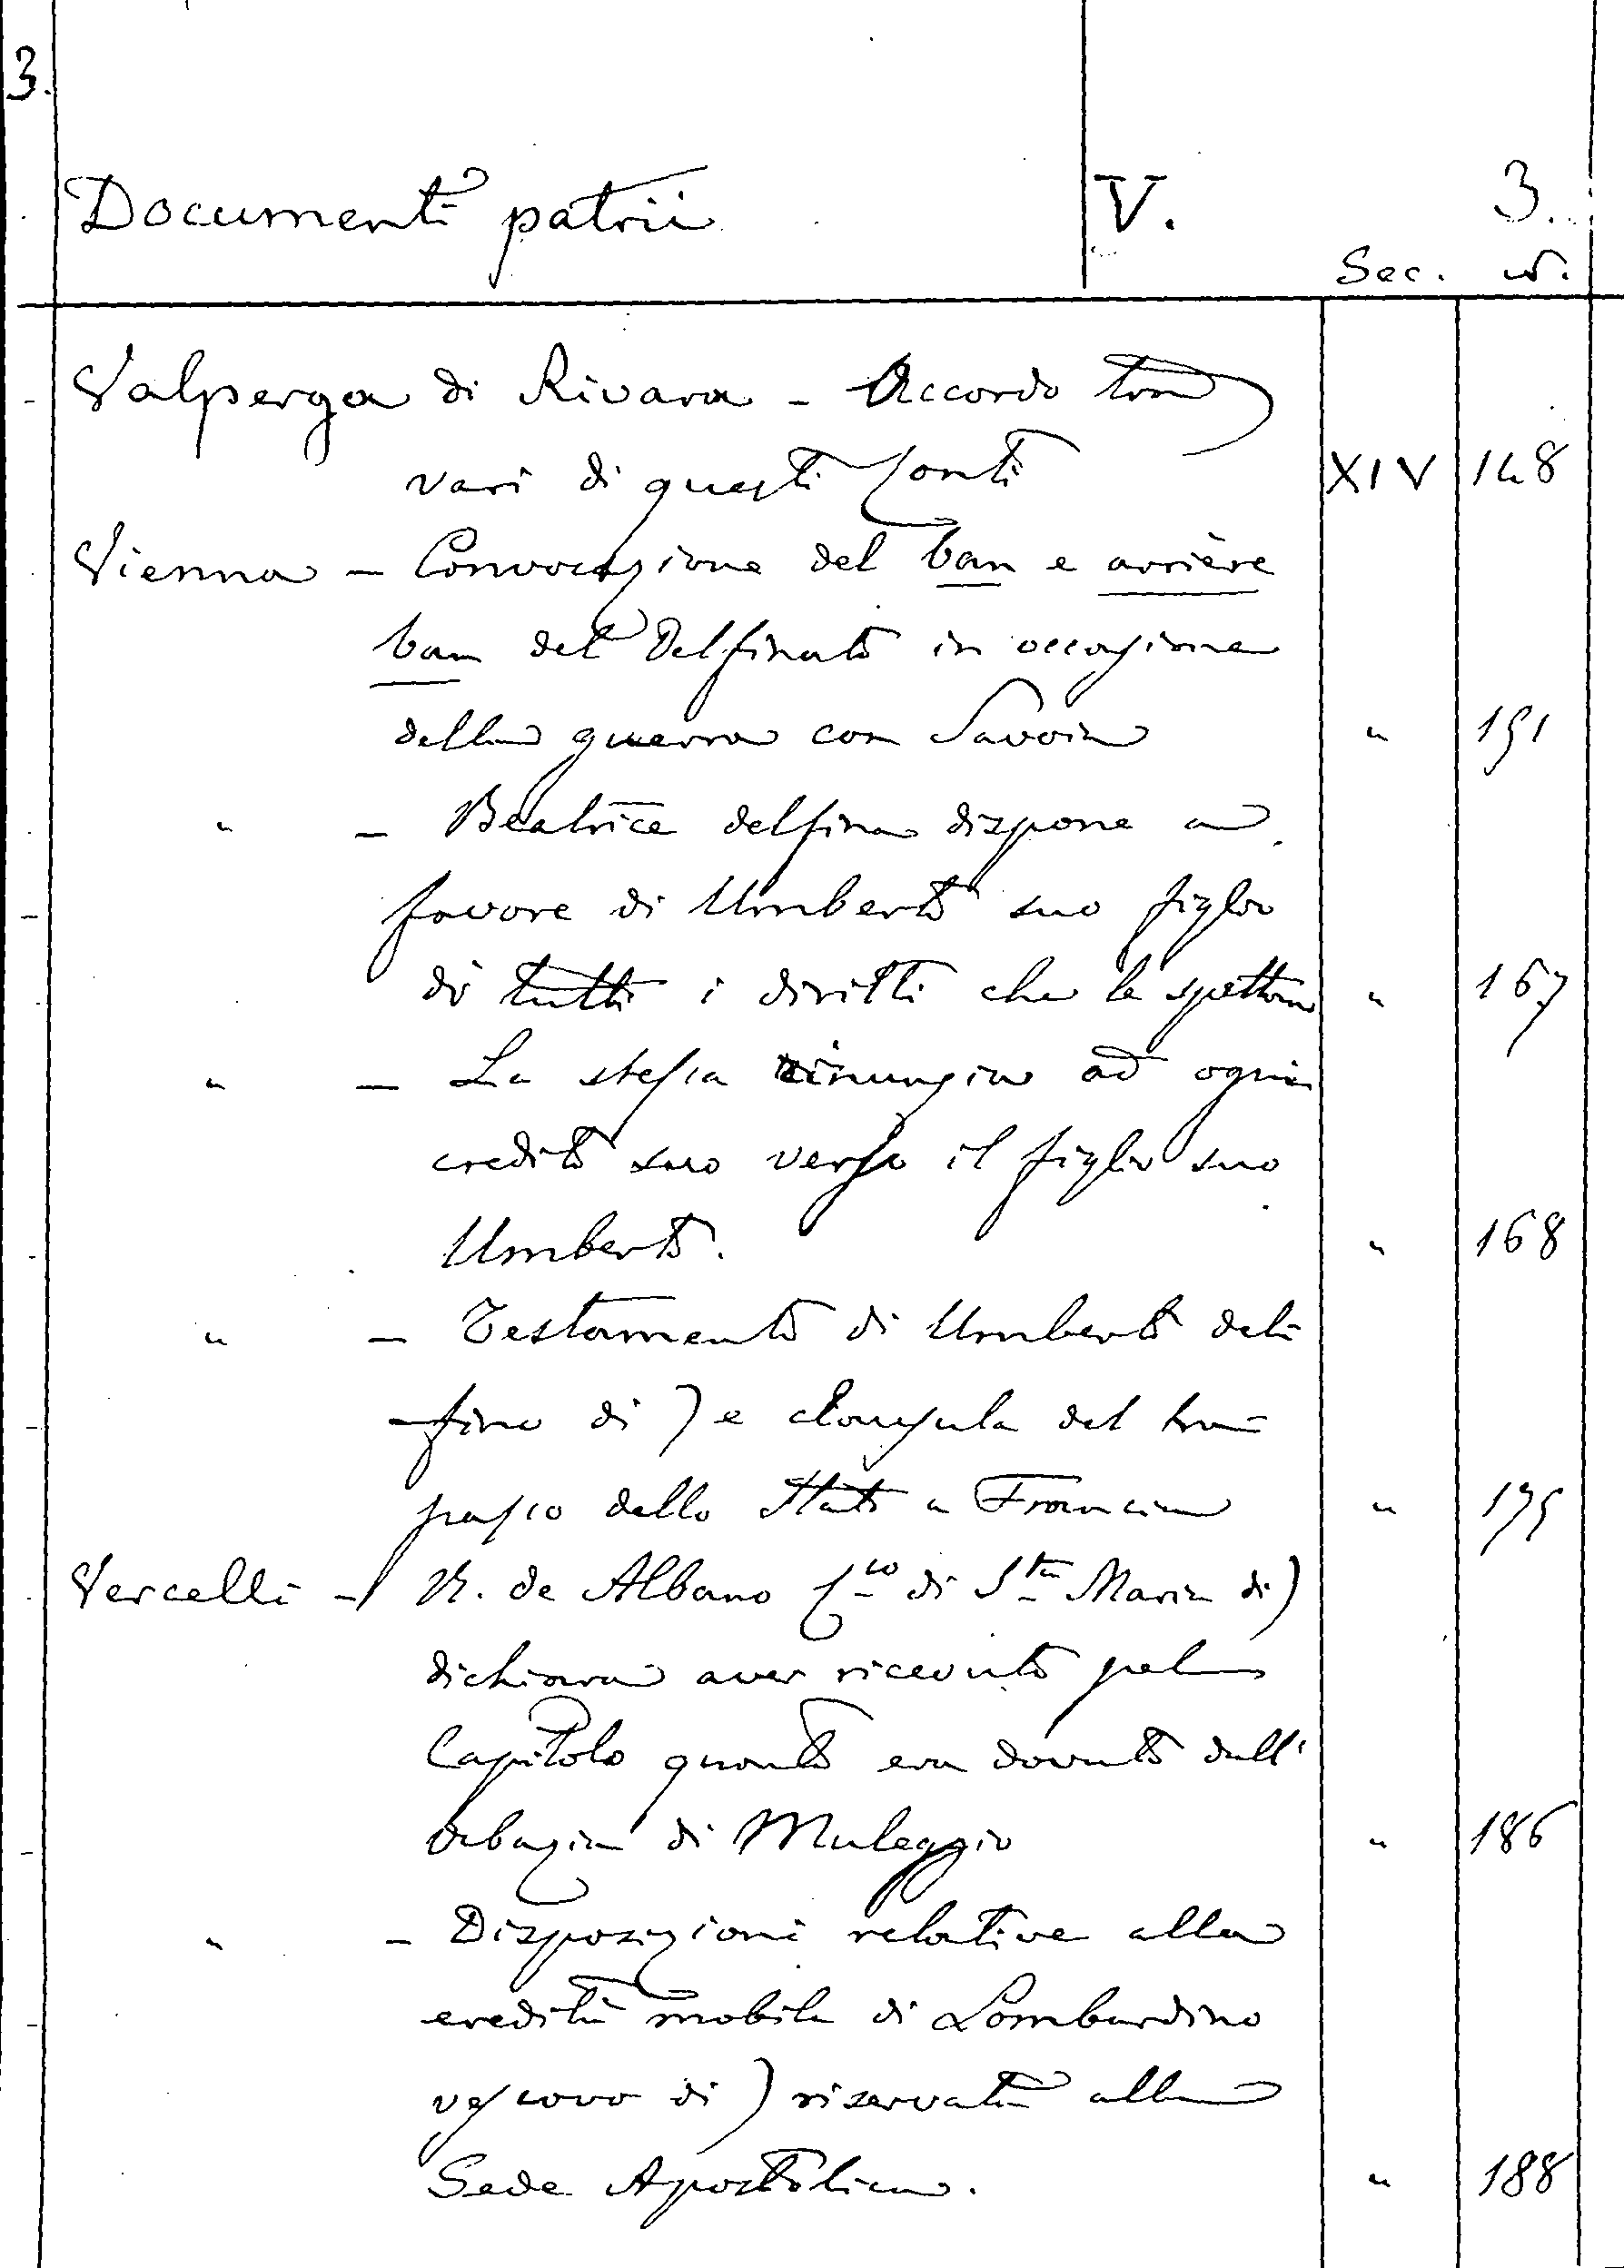 3.
Documenti patrii V. 3.
Sec. N.
Valperga di Rivara - Accordo tra
vari di questi Conti XIV 148
Vienna - Convocazione del ban e arrière
ban del Delfinato in occasione
della guerra con Savoia " 151
" - Beatrice delfina dispone a
favore di Umberto suo figlio
di tutti i diritti che le spettano " 167
" - La stessa rinunzia ad ogni
credito suo verso il figlio suo
Umberto. " 168
" - Testamento di Umberto del=
fino di) e clausula del tra=
passo dello Stato a Francia " 175
Vercelli - R. de Albano (co di Sta Maria di)
dichiara aver ricevuto pel
Capitolo quanto era dovuto dall'
Abazia di Muleggio " 186
" - Disposizioni relative alla
eredità mobile di Lombardino
vescovo di) riservata alla
Sede Apostolica. " 188